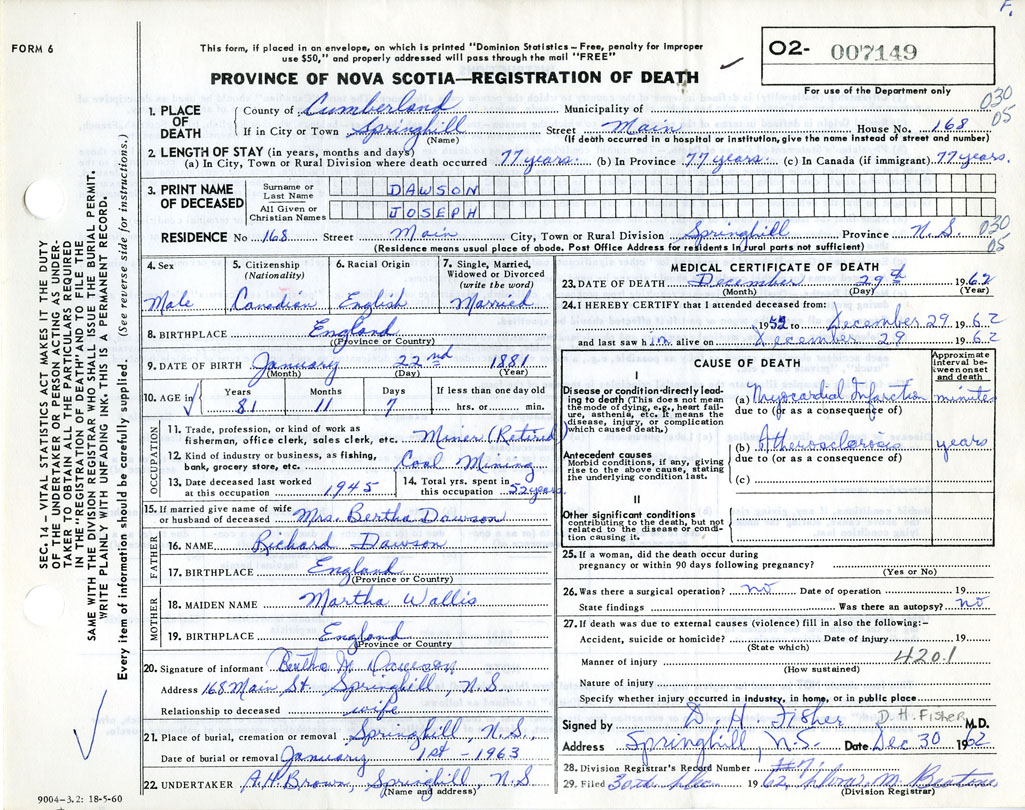 F.
FORM 6
This form, if placed in an envelope, on which is printed "Dominion Statistics – Free, penalty for improper
use $50," and properly addressed will pass through the mail "FREE"
PROVINCE OF NOVA SCOTIA—REGISTRATION OF DEATH
O2- 007149
For use of the Department only
030
05
1. PLACE OF DEATH
County of Cumberland Municipality of
If in City or Town Springhill Street Main House No. 168
(Name) (If death occurred in a hospital or institution, give the name instead of street and number)
2. LENGTH OF STAY (in years, months and days)
(a) In City, Town or Rural Division where death occurred 77 years. (b) In Province 77 years. (c) In Canada (if immigrant) 77 years.
3. PRINT NAME OF DECEASED
Surname or Last Name DAWSON
All Given or Christian Names JOSEPH
030
05
RESIDENCE No 168 Street Main City, Town or Rural Division Springhill Province N.S.
(Residence means usual place of abode. Post Office Address for residents in rural parts not sufficient)
4. Sex Male
5. Citizenship (Nationality) Canadian
6. Racial Origin English
7. Single, Married, Widowed or Divorced (write the word) Married
8. BIRTHPLACE England
(Province or Country)
9. DATE OF BIRTH January 22nd 1881
(Month) (Day) (Year)
10. AGE in Years 81 Months 11 Days 7 If less than one day old hrs. or min.
OCCUPATION
11. Trade, profession, or kind of work as
fisherman, office clerk, sales clerk, etc. Miner (Retired)
12. Kind of industry or business, as fishing,
bank, grocery store, etc. Coal Mining
13. Date deceased last worked at this occupation 1945
14. Total yrs. spent in this occupation 52 years.
15. If married give name of wife
or husband of deceased Mrs. Bertha Dawson
FATHER
16. NAME Richard Dawson
17. BIRTHPLACE England
(Province or Country)
MOTHER
18. MAIDEN NAME Martha Wallis
19. BIRTHPLACE England
(Province or Country)
20. Signature of informant Bertha M Dawson
Address 168 Main St. Springhill, N.S
Relationship to deceased wife
21. Place of burial, cremation or removal Springhill, N.S.
Date of burial or removal January 1st - 1963
22. UNDERTAKER A.H. Brown, Springhill, N.S
(Name and address)
MEDICAL CERTIFICATE OF DEATH
23. DATE OF DEATH December 29th 1962
(Month) (Day) (Year)
24. I HEREBY CERTIFY that I attended deceased from:
1952 to December 29 1962
and last saw him alive on December 29 1962
CAUSE OF DEATH
Approximate interval between onset and death
I
Disease or condition directly leading to death (This does not mean the mode of dying, e.g., heart failure, asthenia, etc. It means the disease, injury, or complication which caused death.)
(a) Myocardial Infarction minutes
due to (or as a consequence of)
Antecedent causes
Morbid conditions, if any, giving rise to the above cause, stating the underlying condition last.
(b) Atherosclerosis years
due to (or as a consequence of)
(c)
II
Other significant conditions
contributing to the death, but not related to the disease or condition causing it.
25. If a woman, did the death occur during
pregnancy or within 90 days following pregnancy?
(Yes or No)
26. Was there a surgical operation? no Date of operation 19
State findings Was there an autopsy? no
27. If death was due to external causes (violence) fill in also the following:-
Accident, suicide or homicide? Date of injury 19
(State which)
Manner of injury 4201
(How sustained)
Nature of injury
Specify whether injury occurred in industry, in home, or in public place
Signed by D. H. Fisher D.H. FISHER M.D.
Address Springhill, N.S. Date Dec 30 1962
28. Division Registrar's Record Number
29. Filed 30th Dec 1962
(Division Registrar)
SEC. 14 — VITAL STATISTICS ACT MAKES IT THE DUTY
OF THE UNDERTAKER OR PERSON ACTING AS UNDERTAKER TO OBTAIN ALL THE PARTICULARS REQUIRED
IN THE "REGISTRATION OF DEATH" AND TO FILE THE
SAME WITH THE DIVISION REGISTRAR WHO SHALL ISSUE THE BURIAL PERMIT.
WRITE PLAINLY WITH UNFADING INK. THIS IS A PERMANENT RECORD.
Every item of information should be carefully supplied. (See reverse side for instructions.)
9004-3.2: 18-5-60